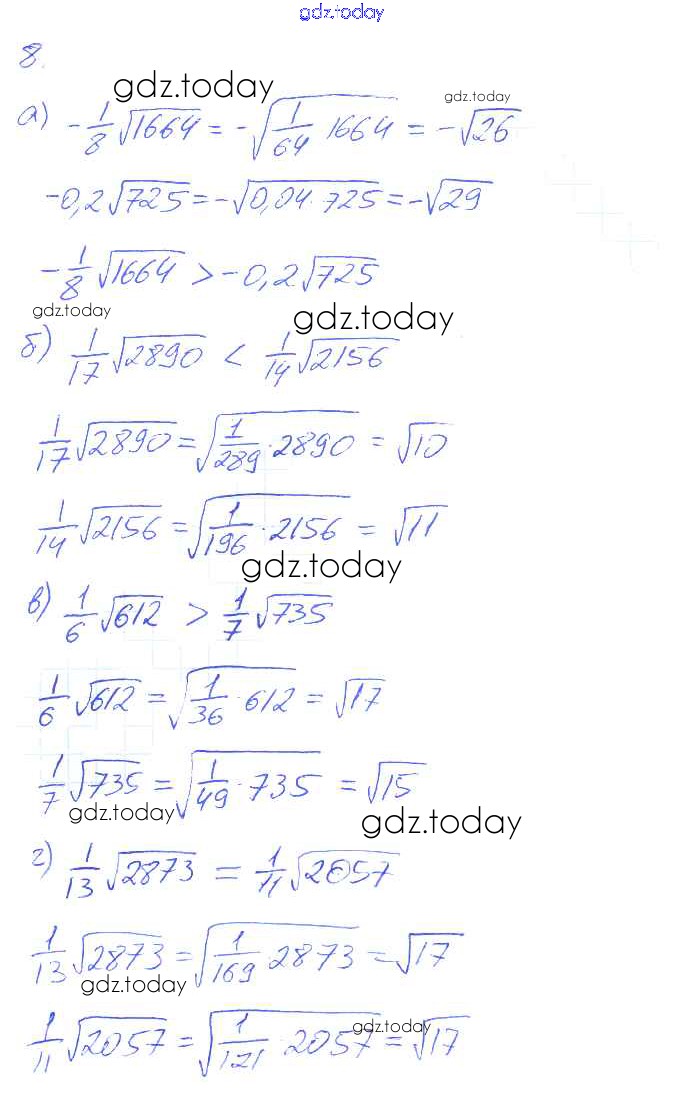 gdz.today
8.
gdz.today
gdz.today
а) -1/8 √1664 = -√(1/64 · 1664) = -√26
-0,2√725 = -√(0,04 · 725) = -√29
-1/8 √1664 > -0,2√725
gdz.today
gdz.today
б) 1/17 √2890 < 1/14 √2156
1/17 √2890 = √(1/289 · 2890) = √10
1/14 √2156 = √(1/196 · 2156) = √11
gdz.today
в) 1/6 √612 > 1/7 √735
1/6 √612 = √(1/36 · 612) = √17
1/7 √735 = √(1/49 · 735) = √15
gdz.today
gdz.today
г) 1/13 √2873 = 1/11 √2057
1/13 √2873 = √(1/169 · 2873) = √17
gdz.today
gdz.today
1/11 √2057 = √(1/121 · 2057) = √17